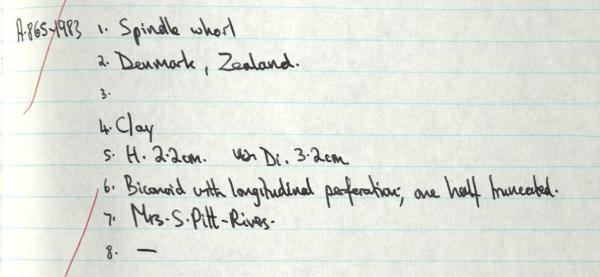 A.865-1983 1. Spindle whorl
2. Denmark, Zealand.
3.
4. Clay
5. H. 2.2cm. Di. 3.2cm
6. Biconoid with longitudinal perforation; one half truncated.
7. Mrs. S. Pitt-Rivers.
8. —